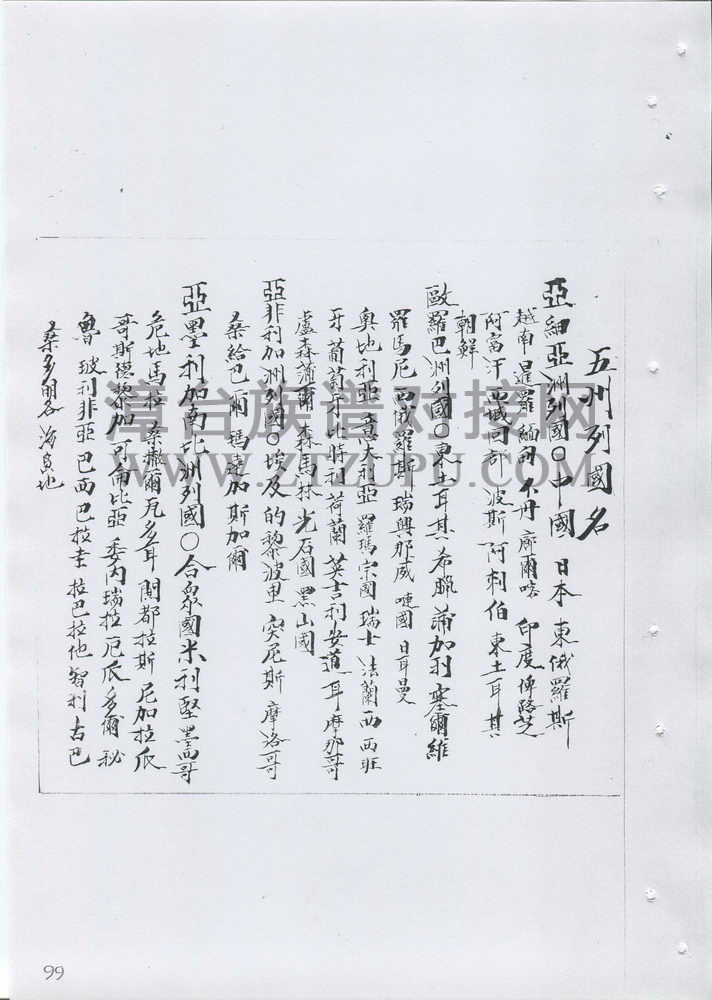 五州列國名
亞細亞洲列國〇中國 日本 東俄羅斯
越南 暹羅 緬甸 不丹 廓爾喀 印度 俾路芝
阿富汗 西域回部 波斯 阿剌伯 東土耳其
朝鮮
歐羅巴洲列國〇東土耳其 希臘 蒲加利 塞爾維
羅馬尼 西俄羅斯 瑞典 那威 嗹國 日耳曼
奧地利亞 意大利亞 羅瑪宗國 瑞士 法蘭西 西班
牙 葡萄牙 比時利 荷蘭 英吉利 安道耳 摩那哥
盧森蒲爾 森馬林 光石國 黑山國
亞非利加洲列國〇埃及 的黎波里 突尼斯 摩洛哥
桑給巴爾 瑪達加斯加爾
亞墨利加南北洲列國〇合衆國米利堅 墨西哥
危地馬拉 桑撒爾尼多耳 閧都拉斯 尼加拉瓜
哥斯德黎加 可侖比亞 委內瑞拉 厄瓜多爾 秘
魯 玻利非亞 巴西 巴拉圭 拉巴拉他 智利 古巴
桑多明各 海
地
漳台族谱对接网
WWW.ZTZUPU.COM
99